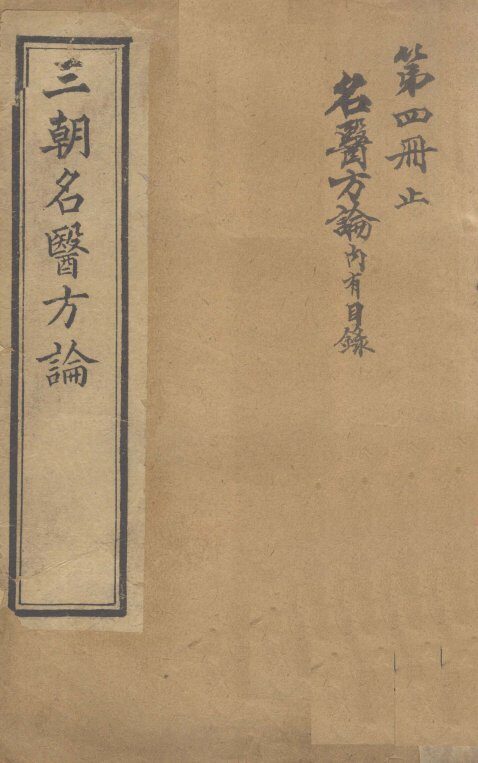 第四冊止
名醫方論內有目錄
三朝名醫方論